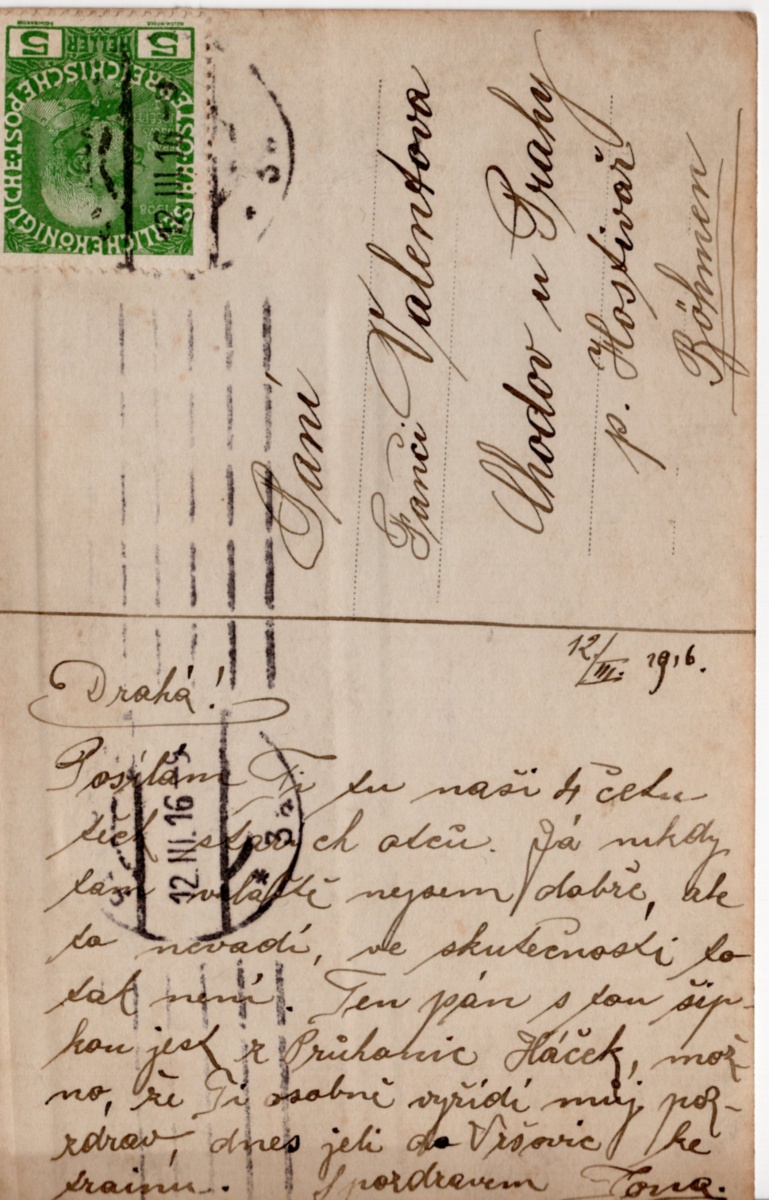 5 HELLER 5
12 III 16
Paní
Fanči Valentova
Chodov u Prahy
p. Hostivař
Böhmen
12/III. 1916.
Drahá!
Posílám Ti tu naši 4 četu
starých otců. Já nikdy
tam nejsem dobře, ale
to nevadí, ve skutečnosti to
tak není. Ten pán s tou šip-
kou jest z Průhonic Háček, mož-
no, že Ti osobně vyřídí můj poz-
zdrav, dnes jeli do Vršovic ke
trainu. S pozdravem Tona.